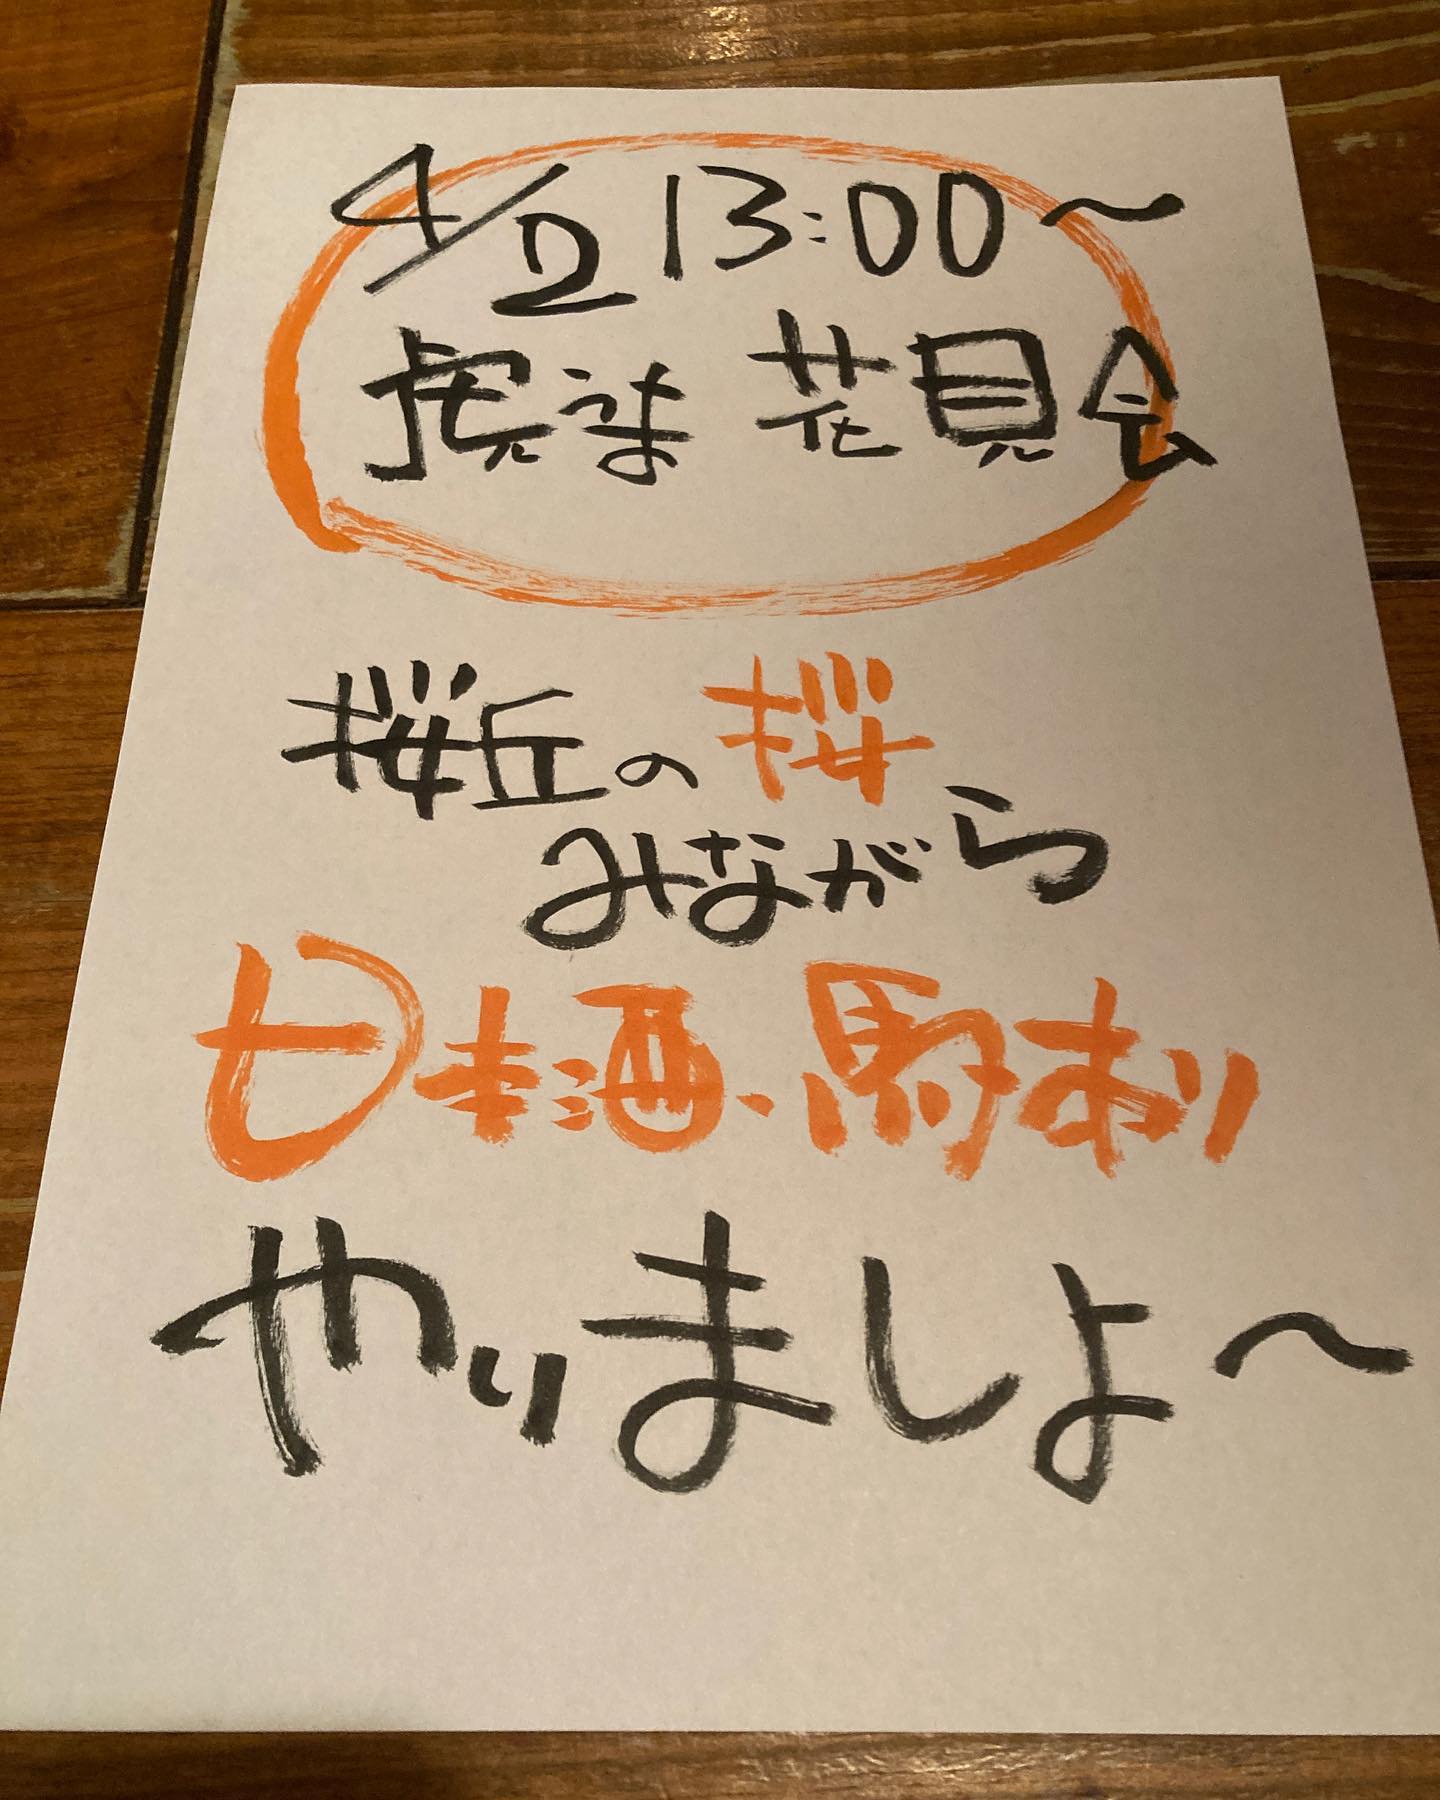 4/2 13:00〜
虎うま 花見会
桜丘の桜
みながら
日本酒、馬刺
やりましょ〜